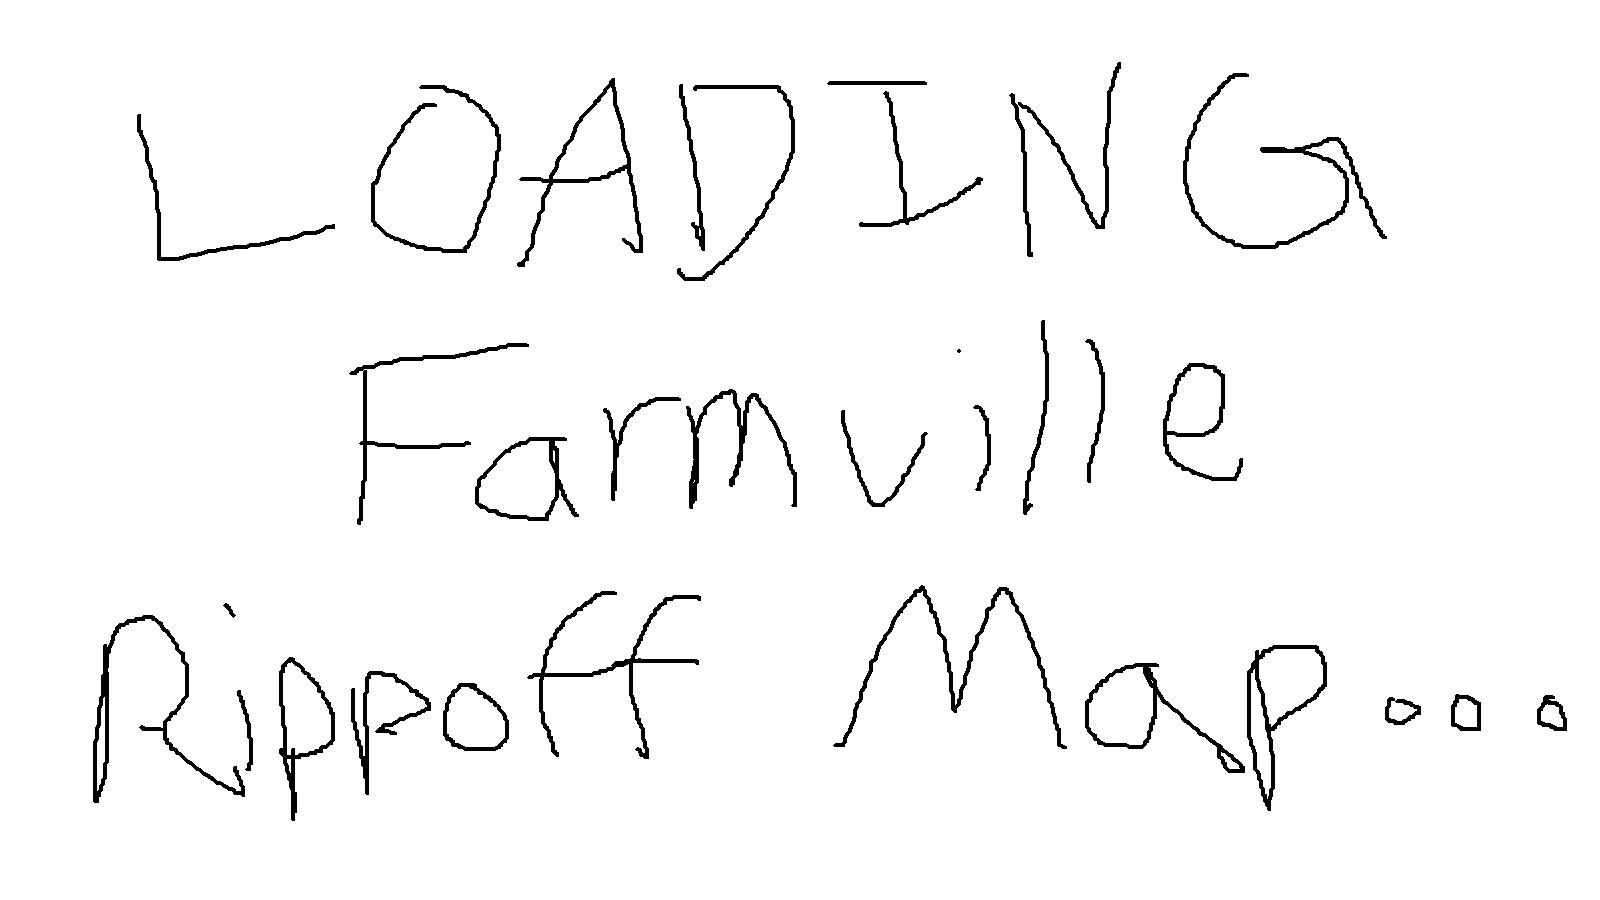 LOADING
Farmville
Rippoff Map...